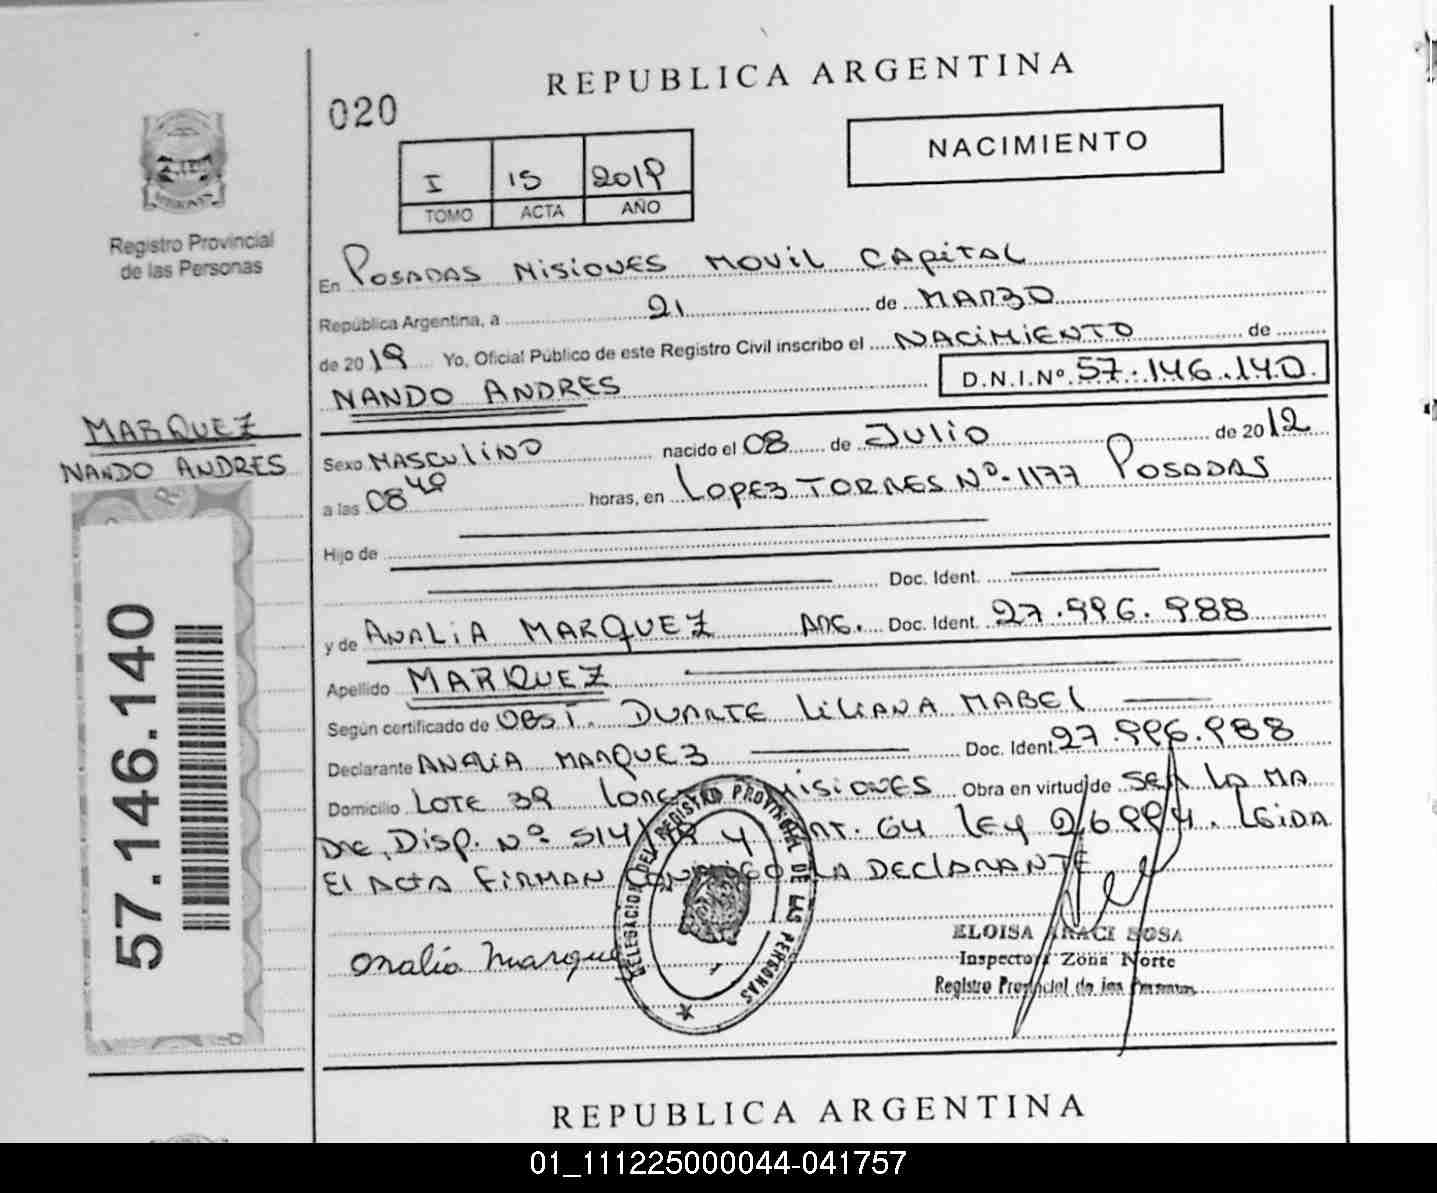 REPUBLICA ARGENTINA
020
NACIMIENTO
I 15 2019
TOMO ACTA AÑO
Registro Provincial
de las Personas
En POSADAS MISIONES MOVIL CAPITAL
República Argentina, a 21 de MARZO
de 2019 Yo, Oficial Público de este Registro Civil inscribo el NACIMIENTO de
NANDO ANDRES D.N.I.Nº. 57.146.140.
MARQUEZ
NANDO ANDRES
Sexo MASCULINO nacido el 08 de JULIO de 2012
a las 08 40 horas, en LOPEZ TORRES Nº. 1177 POSADAS
Hijo de
Doc. Ident.
y de ANALIA MARQUEZ ARG. Doc. Ident. 27.996.988
Apellido MARQUEZ
Según certificado de OBST. DUARTE LILIANA MABEL
Declarante ANALIA MARQUEZ Doc. Ident. 27.996.988
Domicilio LOTE 39 MISIONES Obra en virtud de SER LA MA
DRE. DISP. Nº 514/ Y ART. 64 LEY 26994. LEIDA
EL ACTA FIRMAN CONMIGO LA DECLARANTE
57.146.140
Analia Marque
DELEGACION DEL REGISTRO PROVINCIAL DE LAS PERSONAS
ELOISA ARACI SOSA
Inspectora Zona Norte
Registro Provincial de las Personas
REPUBLICA ARGENTINA
01_111225000044-041757